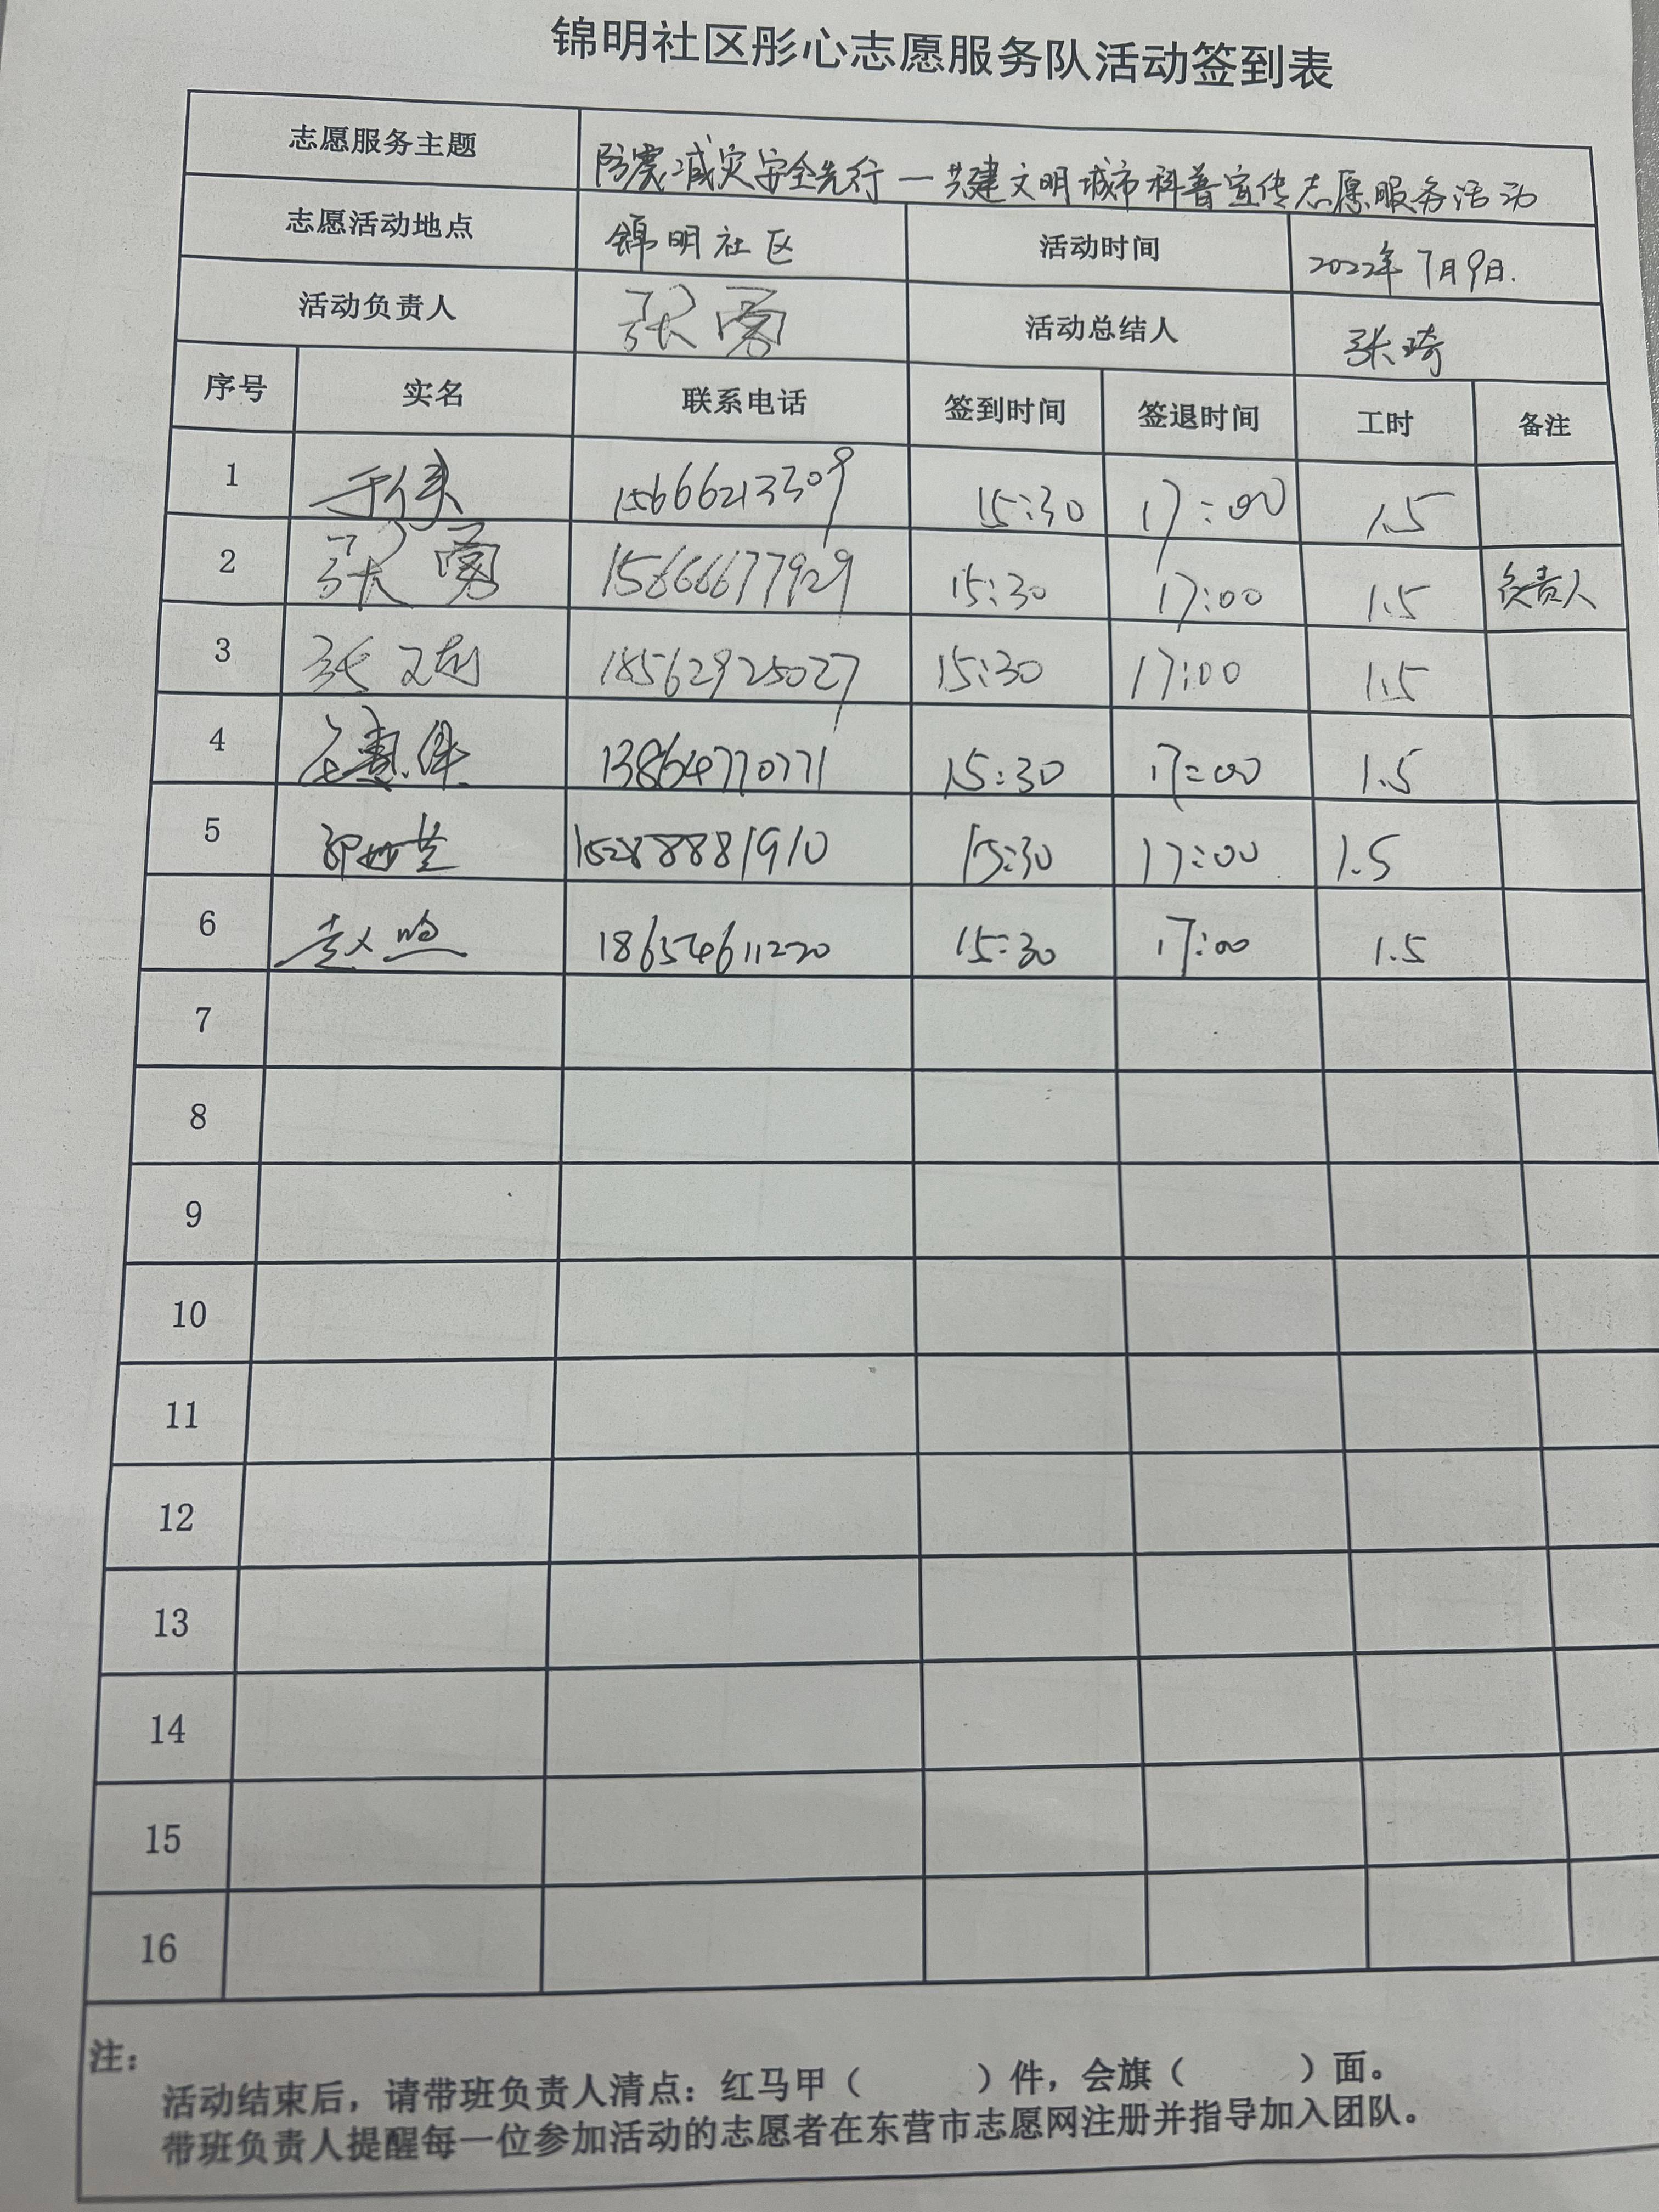 锦明社区彤心志愿服务队活动签到表
志愿服务主题 防震减灾安全先行一共建文明城市科普宣传志愿服务活动
志愿活动地点 锦明社区 活动时间 2022年7月9日.
活动负责人 张 活动总结人 张琦
序号 实名 联系电话 签到时间 签退时间 工时 备注
1 15666213309 15:30 17:00 1.5
2 张 15666677929 15:30 17:00 1.5 负责人
3 张 18562925027 15:30 17:00 1.5
4 13864770771 15:30 17:00 1.5
5 15288881910 15:30 17:00 1.5
6 赵 18654611220 15:30 17:00 1.5
7
8
9
10
11
12
13
14
15
16
注：
活动结束后，请带班负责人清点：红马甲（ ）件，会旗（ ）面。
带班负责人提醒每一位参加活动的志愿者在东营市志愿网注册并指导加入团队。